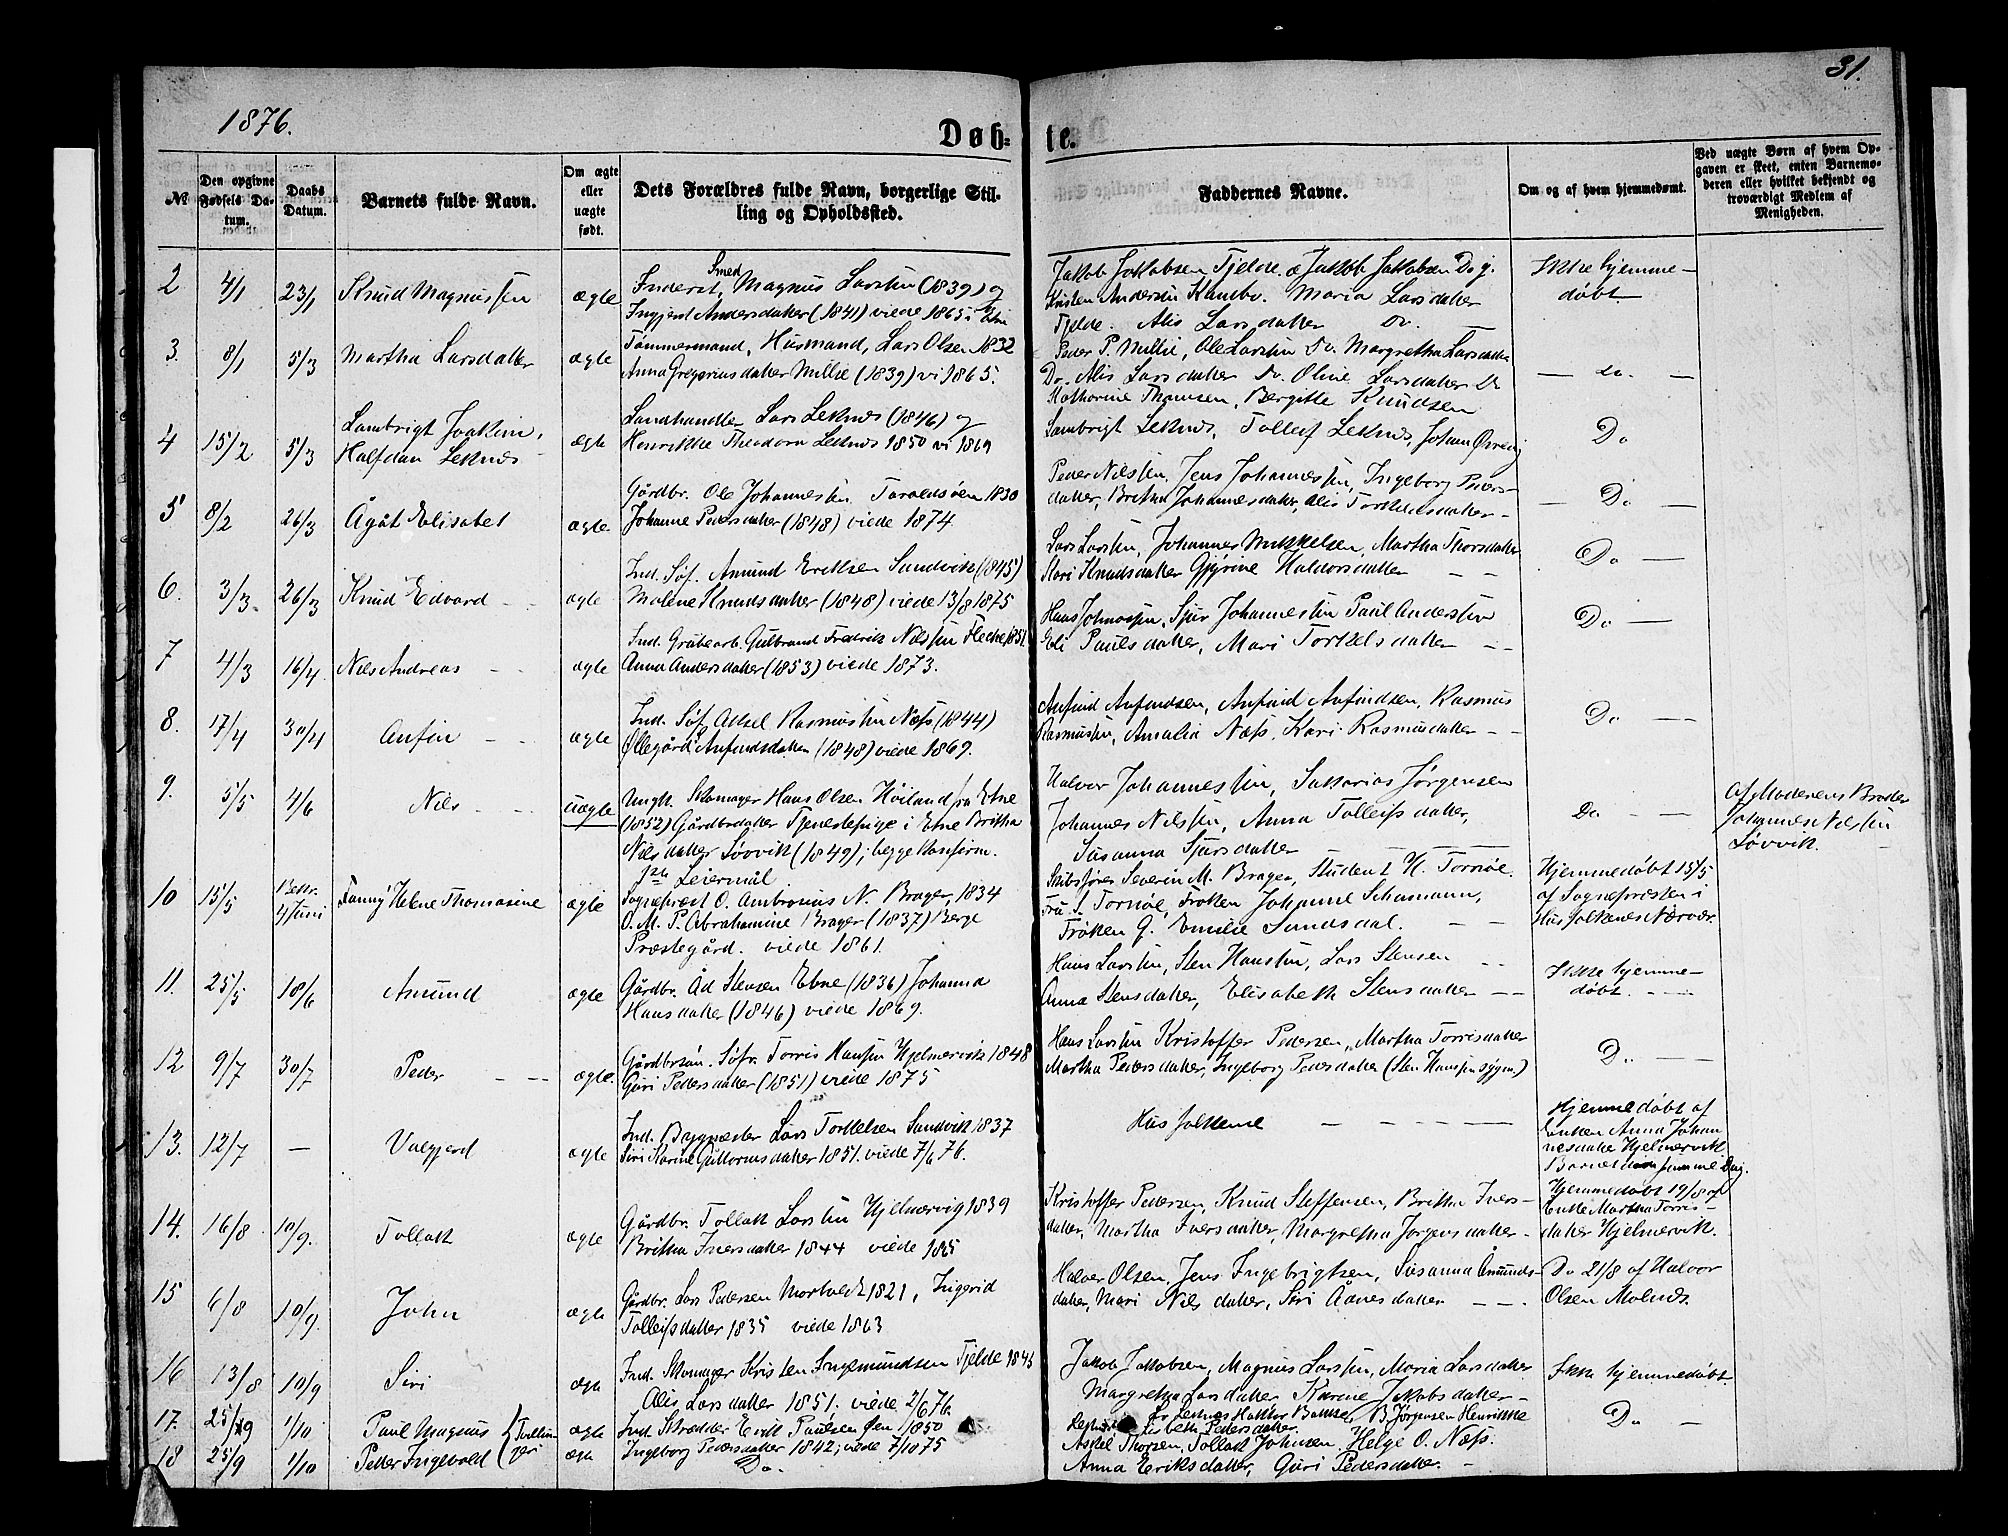 31.
1876.
Døb- te.
№
Den opgivne Fødsels Datum.
Daabs Datum.
Barnets fulde Navn.
Om ægte eller uægte født.
Dets Forældres fulde Navn, borgerlige Stilling og Opholdssted.
Faddernes Navne.
Om og af hvem hjemmedøbt.
Ved uægte Børn af hvem Opgaven er skeet, enten Barnemoderen eller hvilket bekjendt og troværdigt Medlem af Menigheden.
2 4/1 23/1 Knud Magnussen ægte
Smed
Inderst, Magnus Larsen (1839) og
Ingjerd Andersdatter (1841) viede 1865
Jakob Jakobsen Tjelde Jakob Jakobsen Do
Kristen Andersen Kambo. Maria Larsdatter
Tjelde. Alis Larsdatter Do.
Ikke hjemme-
døbt
3. 8/1 5/3 Martha Larsdatter ægte
Tømmermand, Husmand, Lars Olsen 1832
Anna Gregoriusdatter Millie (1839) vi 1865.
Peder P. Millie, Ole Larsen Do. Margretha Larsdatter
Do. Alis Larsdatter Do. Oline Larsdatter Do
Katharine Thomsen, Bergitte Knudsen
— do. —
4 15/2 5/3 Lambrigt Joakim
Halfdan Leknes ægte
Landhandler Lars Leknes (1846) og
Henrikke Theodora Leknes 1850 vi 1869
Lambrigt Leknes, Tolleif Leknes, Johan
Do
5 8/2 26/3 Ågåt Elisabet ægte
Gårdbr. Ole Johannessen Taraldsøen 1830
Johanne Pedersdatter (1848) viede 1874
Peder Nilsen, Jens Johannessen, Ingeborg Peders-
datter, Britha Johannesdatter, Alis Torkildsdatter
— Do —
6. 3/3 26/3 Knud Edvard ægte
Ind. Søf. Amund Eriksen Sandvik (1845)
Malene Knudsdatter (1848) viede 13/8 1875
Lars Larsen, Johannes Mikkelsen, Martha Thorsdatter
Kari Knudsdatter Gjyrine Haldorsdatter
Do —
7 4/3 16/4 Nils Andreas ægte
Ind. Grubearb. Gulbrand Fredrik Nilsen 1851
Anna Andersdatter (1853) viede 1873.
Hans Johnsen, Sjur Johannessen Paul Andersen
Eli Paulsdatter, Mari Torkelsdatter
Do —
8. 17/4 30/4 Anfin ægte
Ind. Søf. Aksel Rasmussen Næss (1844)
Øllegård Anfindsdatter (1848) viede 1869.
Anfind Anfindsen, Anfind Anfindsen, Rasmus
Rasmussen, Amalia Næss, Kari Rasmusdatter
Do —
9. 5/5 4/6 Nils uægte
Ungk. Skomager Hans Olsen Høiland fra Etne
(1852) Gårdbrdatter Tjenestepige i Etne Britha
Nilsdatter Løvvik (1849); begge Konfirm.
1ste Leiermål
Halvor Johannessen, Sakkarias Jørgensen
Johannes Nilsen, Anna Tolleifsdatter,
Susanna Sjursdatter
Do —
Af Moderens Broder
Johannes Nilsen
Løvvik.
10 15/5 4 Juni Fanny Helene Thomasine ægte
Sognepræst O. Ambrosius N. Brager, 1834
O. M. P. Abrahamine Brager (1837) Berge
Præstegård. viede 1861.
Skibsfører Severin M. Brager, Student H. Tornøe
Fru S. Tornøe, Frøken Johanne Schumann,
Frøken G. Emilie Sundsdal.
Hjemmedøbt 15/5
af Sognepræsten i
Husfolkenes Nærvær.
11. 25/5 18/6 Amund ægte
Gårdbr. Åd Stensen Ebne (1836) Johanna
Hansdatter (1846) viede 1869.
Hans Larsen, Sten Hansen, Lars Stensen
Anna Stensdatter, Elisabeth Stensdatter
Ikke hjemme-
døbt.
12 9/7 30/7 Peder ægte.
Gårdbrsøn. Søf. Torris Hansen Hjelmervik 1848
Guri Pedersdatter (1851) viede 1875
Hans Larsen Kristoffer Pedersen, Martha Torrisdatter
Martha Pedersdatter, Ingeborg Pedersdatter
Do —
13. 12/7 — Valgjerd ægte
Ind. Lars Torkelsen Sandvik 1837
Siri Karine Guttormsdatter 1851. viede 7/6 76.
Husfolkene
Hjemmedøbt af
Enken Anna Johan-
nesdatter Hjelmervik
14. 16/8 10/9. Tollak ægte
Gårdbr. Tollak Larsen Hjelmervig 1839
Britha Iversdatter 1844 viede 1865
Kristoffer Pedersen, Knud Steffensen, Britha Ivers-
datter, Martha Iversdatter, Margretha Jørgensdatter
Hjemmedøbt 19/8 af
Enke Martha Torris-
datter Hjelmervik.
15 6/8 10/9. John ægte
Gårdbr. Lars Pedersen 1821, Ingerid
Tolleifsdatter 1835 viede 1863
Halvor Olsen, Jens Ingebrigtsen, Susanna Amunds-
datter, Mari Nilsdatter, Siri Ådnesdatter
Do 21/8 af Halvor
Olsen Molnes.
16 13/8 10/9 Siri ægte
Ind. Skomager Kristen Ingemundsen Tjelde
Alis Larsdatter 1851. viede 2/6 76.
Jakob Jakobsen, Magnus Larsen, Maria Larsdatter
Margretha Larsdatter Karine Jakobsdatter
Ikke hjemmedøbt
17. 25/9 1/10 Paul Magnus ægte
Ind. Skredder Erik Paulsen Øen 1850
Ingeborg Pedersdatter 1842; viede 7/10 75
B Jørgensen Henrikke
Do —
18 25/9 1/10 Peder Ingevald ægte
Do.
Askel Thorsen, Tollak Johnsen. Helge O. Næss.
Anna Eriksdatter, Guri Pedersdatter.